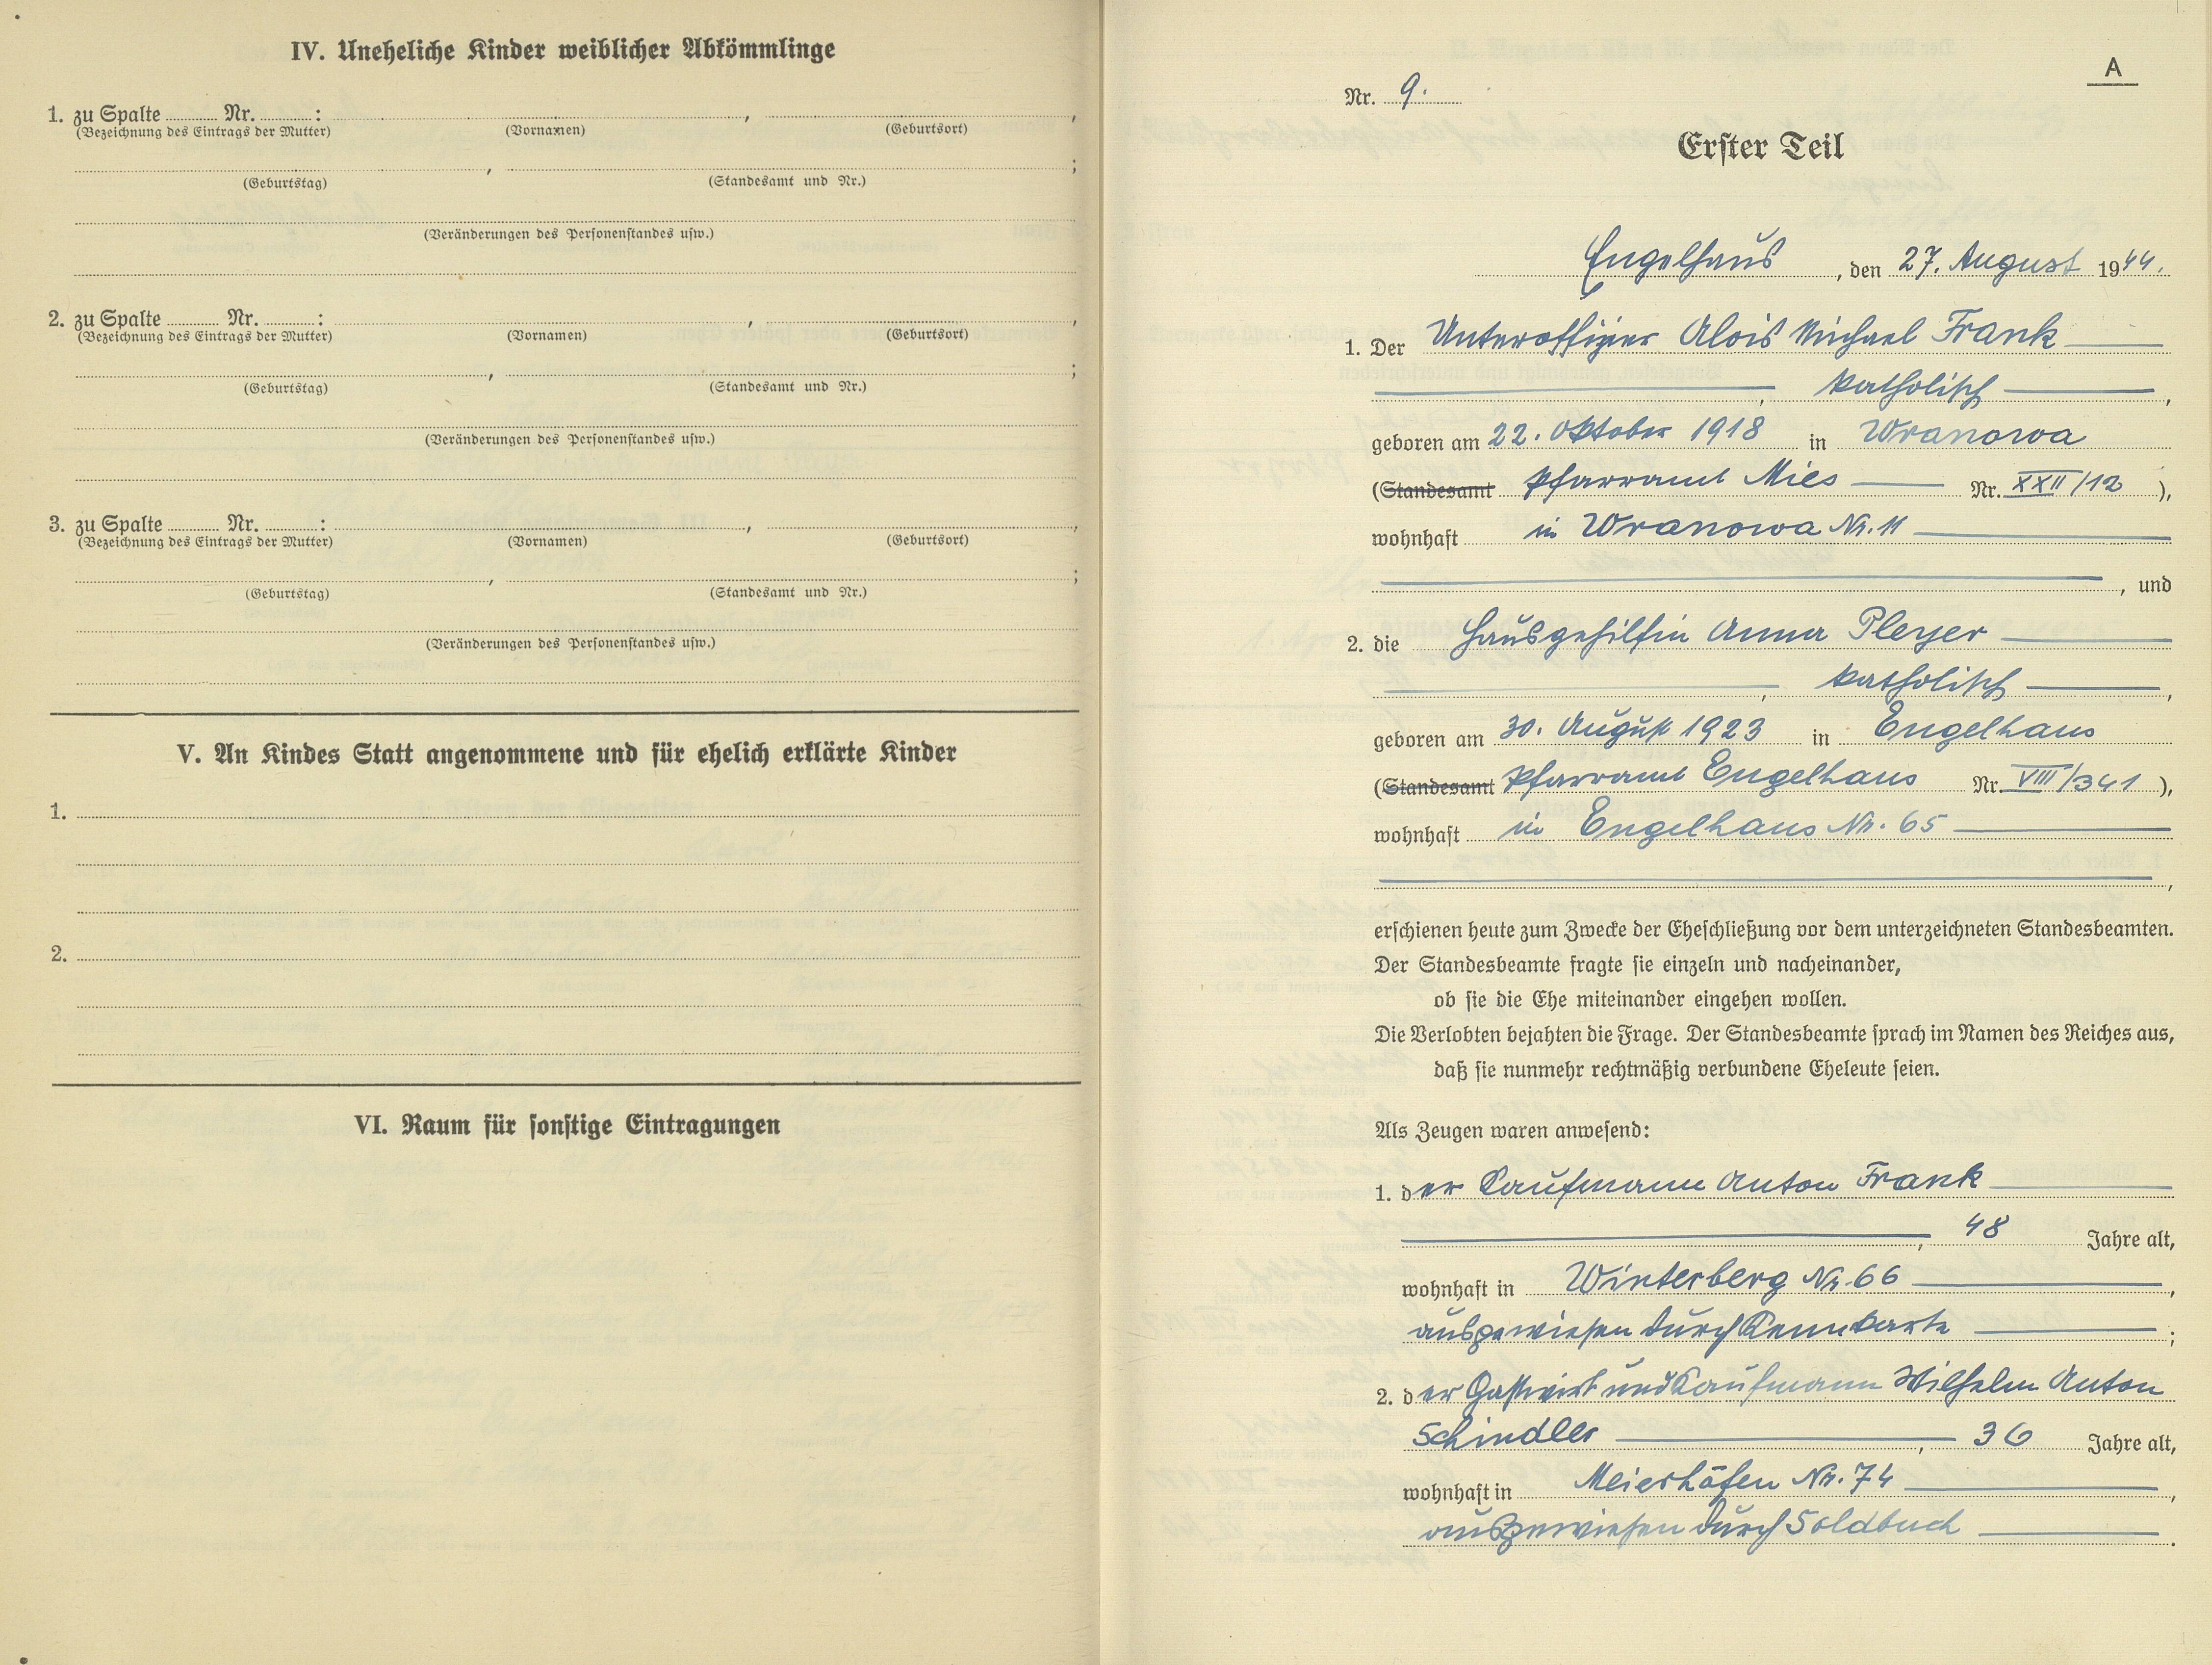 IV. Uneheliche Kinder weiblicher Abkömmlinge
1. zu Spalte ........ Nr. ........ : , ,
(Bezeichnung des Eintrags der Mutter) (Vornamen) (Geburtsort)
, ;
(Geburtstag) (Standesamt und Nr.)
(Veränderungen des Personenstandes usw.)
2. zu Spalte ........ Nr. ........ : , ,
(Bezeichnung des Eintrags der Mutter) (Vornamen) (Geburtsort)
, ;
(Geburtstag) (Standesamt und Nr.)
(Veränderungen des Personenstandes usw.)
3. zu Spalte ........ Nr. ........ : , ,
(Bezeichnung des Eintrags der Mutter) (Vornamen) (Geburtsort)
, ;
(Geburtstag) (Standesamt und Nr.)
(Veränderungen des Personenstandes usw.)
V. An Kindes Statt angenommene und für ehelich erklärte Kinder
1.
2.
VI. Raum für sonstige Eintragungen
A
Nr. 9.
Erster Teil
Engelhaus, den 27. August 1944.
1. Der Unteroffizier Alois Michael Frank
, katholisch ,
geboren am 22. Oktober 1918 in Wranowa
(Standesamt Pfarramt Mies Nr. XXII/12 ),
wohnhaft in Wranowa Nr. 11
, und
2. die Hausgehilfin Anna Pleyer
, katholisch ,
geboren am 30. August 1923 in Engelhaus
(Standesamt Pfarramt Engelhaus Nr. VIII/341 ),
wohnhaft in Engelhaus Nr. 65
,
erschienen heute zum Zwecke der Eheschließung vor dem unterzeichneten Standesbeamten.
Der Standesbeamte fragte sie einzeln und nacheinander,
ob sie die Ehe miteinander eingehen wollen.
Die Verlobten bejahten die Frage. Der Standesbeamte sprach im Namen des Reiches aus,
daß sie nunmehr rechtmäßig verbundene Eheleute seien.
Als Zeugen waren anwesend:
1. der Kaufmann Anton Frank
, 48 Jahre alt,
wohnhaft in Winterberg Nr. 66 ,
ausgewiesen durch Kennkarte ;
2. der Gastwirt und Kaufmann Wilhelm Anton
Schindler , 36 Jahre alt,
wohnhaft in Meierhöfen Nr. 74 ,
ausgewiesen durch Soldbuch .